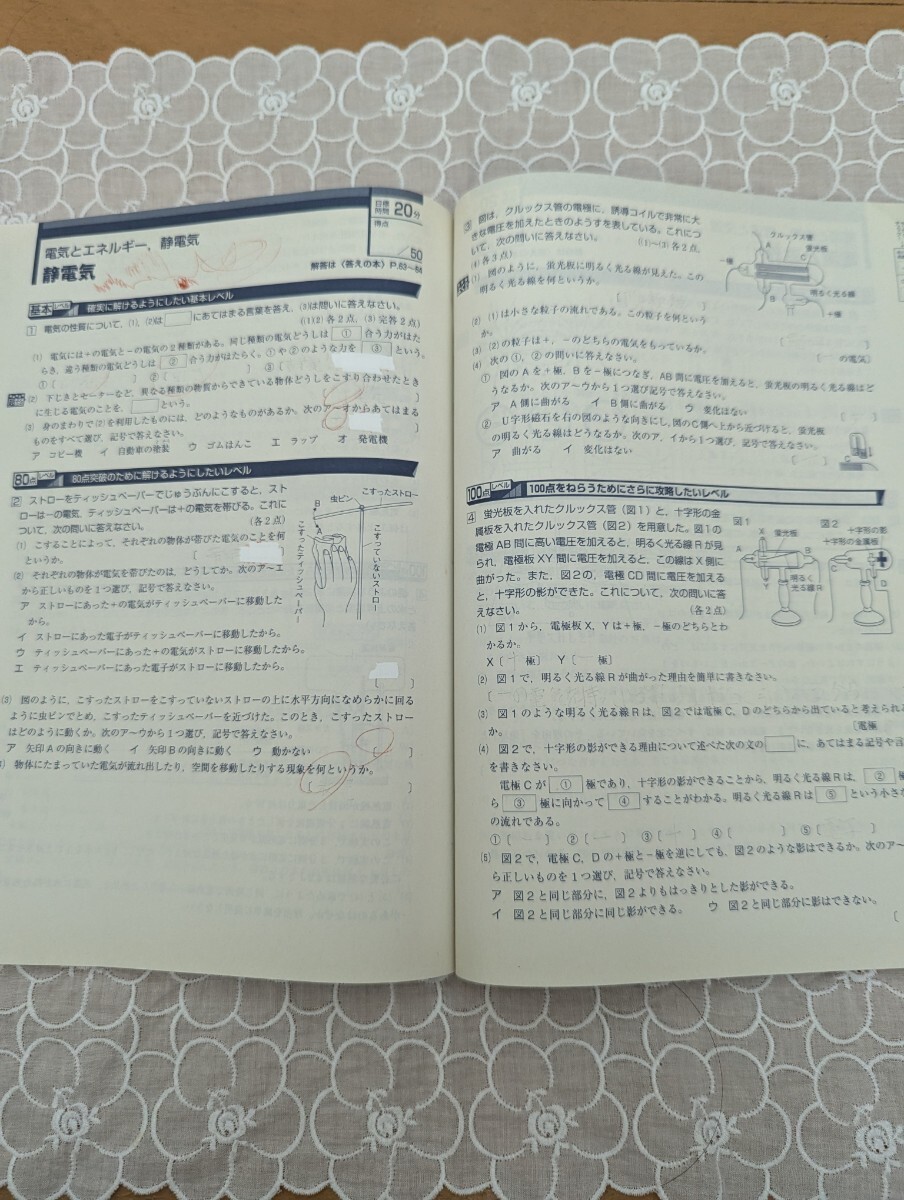 目標時間 20分
得点
/50
電気とエネルギー，静電気
静電気
解答は〈答えの本〉P.63〜64
基本レベル 確実に解けるようにしたい基本レベル
1 電気の性質について，(1)，(2)は□にあてはまる言葉を答え，(3)は問いに答えなさい。
((1)(2)各2点，(3)完答2点)
(1) 電気には＋の電気と－の電気の2種類がある。同じ種類の電気どうしは ① 合う力がはた
らき，違う種類の電気どうしは ② 合う力がはたらく。①や②のような力を ③ という。
①〔 〕 ②〔 〕 ③〔 〕
(2) 下じきとセーターなど，異なる種類の物質からできている物体どうしをこすり合わせたとき
に生じる電気のことを，□という。
(3) 身のまわりで(2)を利用したものには，どのようなものがあるか，次のア〜オからあてはまる
ものをすべて選び，記号で答えなさい。
ア コピー機 イ 自動車の塗装 ウ ゴムはんこ エ ラップ オ 発電機
80点レベル 80点突破のために解けるようにしたいレベル
2 ストローをティッシュペーパーでじゅうぶんにこすると，スト
ローは－の電気，ティッシュペーパーは＋の電気を帯びる。これに
ついて，次の問いに答えなさい。 (各2点)
(1) こすることによって，それぞれの物体が帯びた電気のことを何
というか。
(2) それぞれの物体が電気を帯びたのは，どうしてか。次のア〜エ
から正しいものを1つ選び，記号で答えなさい。
ア ストローにあった＋の電気がティッシュペーパーに移動した
から。
イ ストローにあった電子がティッシュペーパーに移動したから。
ウ ティッシュペーパーにあった＋の電気がストローに移動したから。
エ ティッシュペーパーにあった電子がストローに移動したから。
虫ピン
こすったストロー
B
こすったティッシュペーパー
こすっていないストロー
(3) 図のように，こすったストローをこすっていないストローの上に水平方向になめらかに回る
ように虫ピンでとめ，こすったティッシュペーパーを近づけた。このとき，こすったストロー
はどのように動くか。次のア〜ウから1つ選び，記号で答えなさい。
ア 矢印Aの向きに動く イ 矢印Bの向きに動く ウ 動かない
物体にたまっていた電気が流れ出したり，空間を移動したりする現象を何というか。
3 図は，クルックス管の電極に，誘導コイルで非常に大
きな電圧を加えたときのようすを表している。これにつ
いて，次の問いに答えなさい。 ((1)〜(3)各2点，
(4)各3点)
(1) 図のように，蛍光板に明るく光る線が見えた。この
明るく光る線を何というか。
(2) (1)は小さな粒子の流れである。この粒子を何とい
うか。
(3) (2)の粒子は＋，－のどちらの電気をもっているか。
〔 の電気〕
(4) 次の①，②の問いに答えなさい。
① 図のAを＋極，Bを－極につなぎ，AB間に電圧を加えると，蛍光板の明るく光る線はど
うなるか。次のア〜ウから1つ選び記号で答えなさい。
ア A側に曲がる イ B側に曲がる ウ 変化はない
② U字形磁石を右の図のような向きにし，図のC側へ上から近づけると，蛍光板
の明るく光る線はどうなるか。次のア，イから1つ選び，記号で答えなさい。
ア 曲がる イ 変化はない
クルックス管
A
蛍光板
－極
C
B
明るく光る線
＋極
C
100点レベル 100点をねらうためにさらに攻略したいレベル
4 蛍光板を入れたクルックス管（図1）と，十字形の金
属板を入れたクルックス管（図2）を用意した。図1の
電極AB間に高い電圧を加えると，明るく光る線Rが見
られ，電極板XY間に電圧を加えると，この線はX側に
曲がった。また，図2の，電極CD間に電圧を加える
と，十字形の影ができた。これについて，次の問いに答
えなさい。 (各2点)
図1
X
蛍光板
A
B
Y
明るく光る線R
図2
十字形の影
十字形の金属板
C
D
(1) 図1から，電極板X，Yは＋極，－極のどちらとわ
かるか。
X〔 極〕 Y〔 極〕
(2) 図1で，明るく光る線Rが曲がった理由を簡単に書きなさい。
(3) 図1のような明るく光る線Rは，図2では電極C，Dのどちらから出ていると考えられる
〔電極
(4) 図2で，十字形の影ができる理由について述べた次の文の□に，あてはまる記号や言
を書きなさい。
電極Cが ① 極であり，十字形の影ができることから，明るく光る線Rは， ② 極
ら ③ 極に向かって ④ することがわかる。明るく光る線Rは ⑤ という小さな
の流れである。
①〔 〕 ②〔 〕 ③〔 〕 ④〔 〕 ⑤〔 〕
(5) 図2で，電極C，Dの＋極と－極を逆にしても，図2のような影はできるか。次のア〜
ら正しいものを1つ選び，記号で答えなさい。
ア 図2と同じ部分に，図2よりもはっきりとした影ができる。
イ 図2と同じ部分に同じ影ができる。 ウ 図2と同じ部分に影はできない。